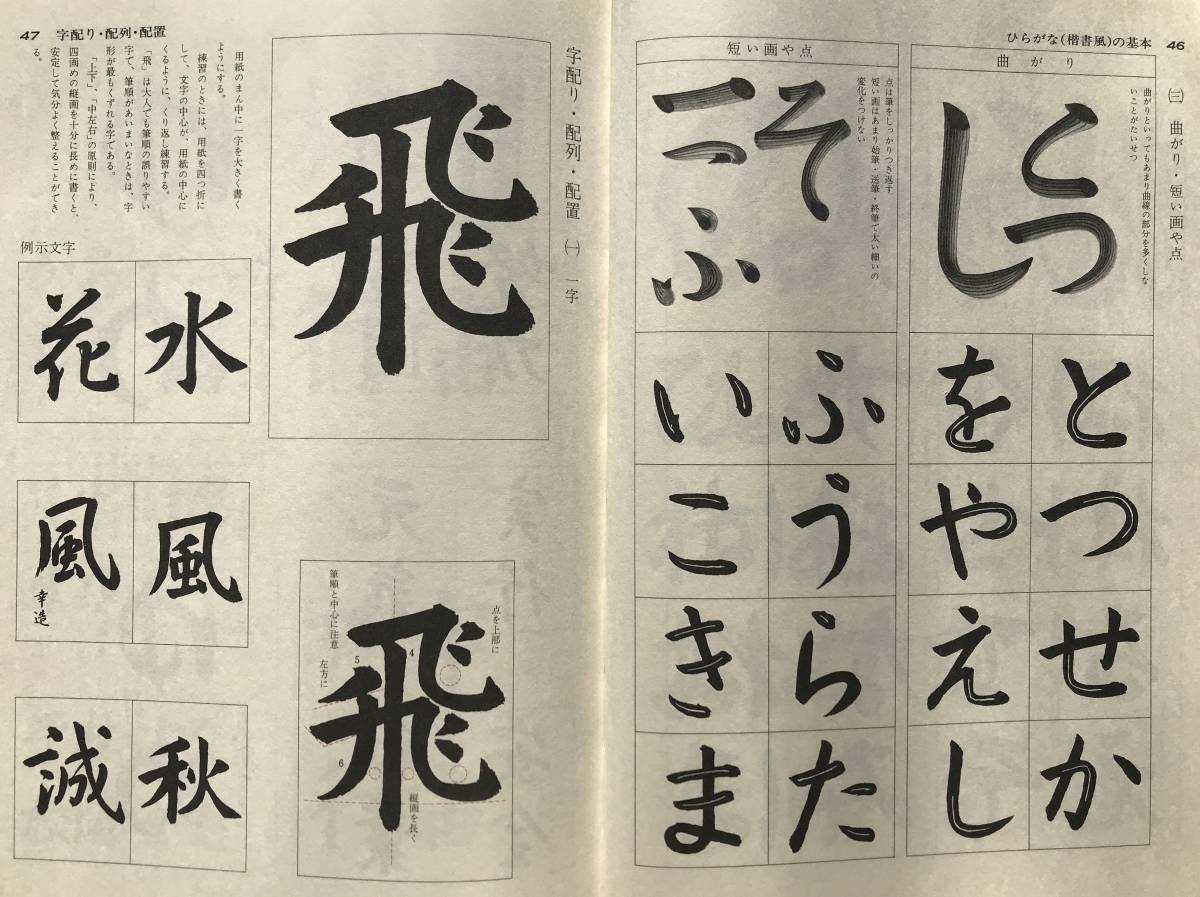 ひらがな(楷書風)の基本 46
㈢ 曲がり・短い画や点
曲がりといってもあまり曲線の部分を多くしな
いことがたいせつ
曲がり
こ
し
つ
と
つ
せ
か
を
や
え
し
短い画や点
点は筆をしっかりつき返す
短い画はあまり始筆・送筆・終筆で太い細いの
変化をつけない
そ
ふ
ふ
う
ら
た
い
こ
き
ま
47 字配り・配列・配置
字配り・配列・配置 ㈠ 一字
飛
点を上部に
4
5
筆順と中心に注意
左方に
6
縦画を長く
飛
用紙のまん中に一字を大きく書く
ようにする。
練習のときには、用紙を四つ折に
して、文字の中心が、用紙の中心に
くるように、くり返し練習する。
「飛」は大人でも筆順の誤りやすい
字で、筆順があいまいなときは、字
形が最もくずれる字である。
「上下」、「中左右」の原則により、
四画めの縦画を十分に長めに書くと、
安定して気分よく整えることができ
る。
例示文字
水
花
風
風
幸造
秋
誠